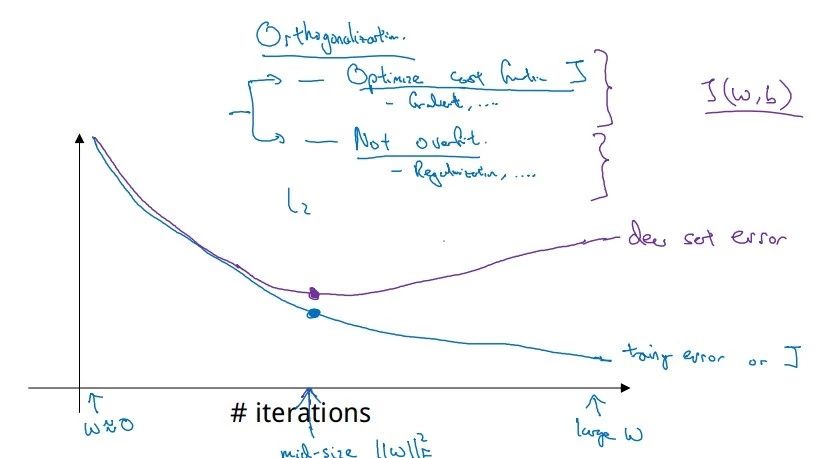 Orthogonalization.
— Optimize cost function J
- Gradient, ....
J(w,b)
— Not overfit.
- Regularization, ....
L2
dev set error
traing error or J
# iterations
w≈0
mid-size ||w||²F
large w